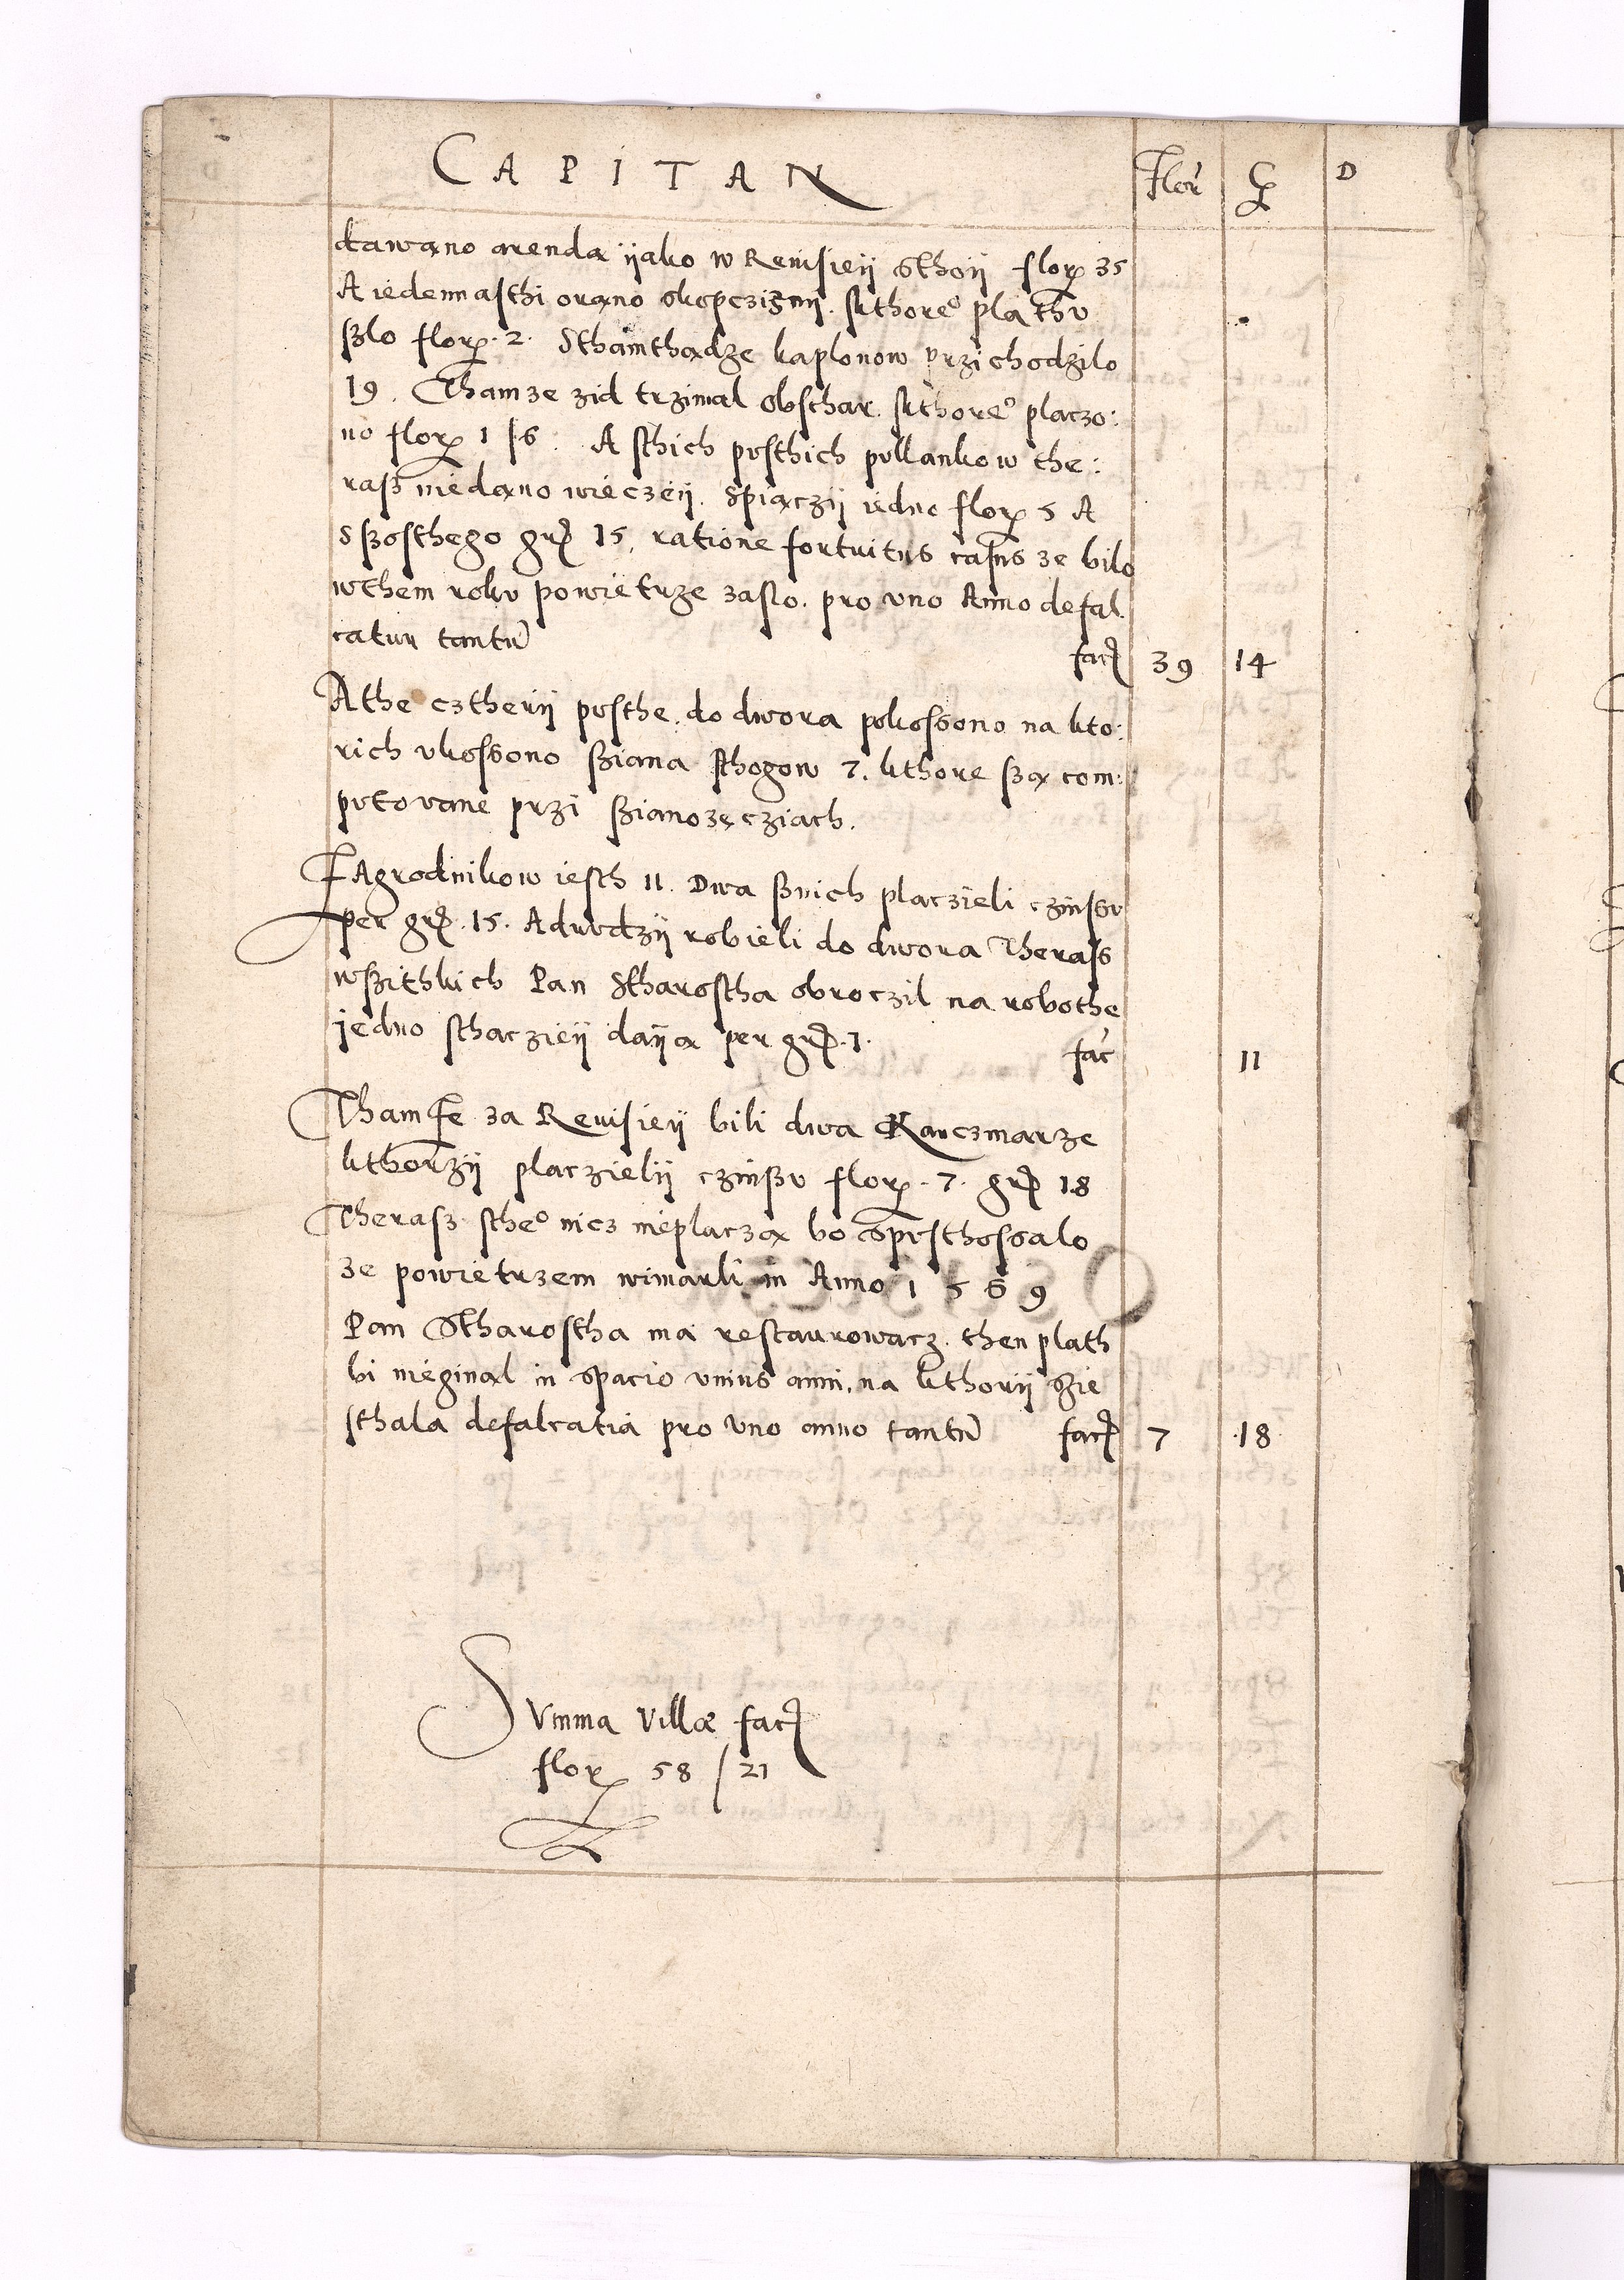 CAPITAN Flor̃ G̃ D
dawąno arendą ÿako w Reuisieÿ sthoÿ flor 35
A iedennasthi orąno okopczisnÿ. skthore⁰ plathv
szlo flor. 2. Sthamthądze kaplonow przichodzilo
19. Thamze zid trzimal obschar. skthore⁰ placzo:
no flor 1 / 6. A sthich pvsthich pvllankow the:
rasz niedąno wieczeÿ. Spiączÿ iedno flor 5 A
Sszosthego gr 15, ratione fortuitus casus ze bilo
wthem rokv powietrze zaslo. pro vno Anno defal
catur tantũ fac 39 14
Athe cztherÿ pvsthe, do dwora pokossono na kto:
rich vkossono sziana sthogow 7. kthore szą com:
pvtowane przi szianozęcziach.
ZAgrodnikow iesth 11. Dwa sznich placzieli czinssv
per gr. 15. A drvdzÿ robieli do dwora Therass
wszithkich Pan Stharostha obroczil na robothe
jedno sthaczieÿ daÿą per gr. 1. fac̃ 11
Thamze za Reuisieÿ bili dwa Karczmarze
kthorzÿ placzielÿ czinszv flor. 7. gr 18
Therasz sthe⁰ nicz nieplaczą bo spvsthossalo
ze powietrzem wimarli in Anno 1569
Pan Stharostha ma restaurowacz. then plath
bi nieginął in spacio vnius anni, na kthorÿ szie
sthala defalcatia pro vno anno tantũ fac 7 18
Svmma Villæ fac
flor 58 / 21